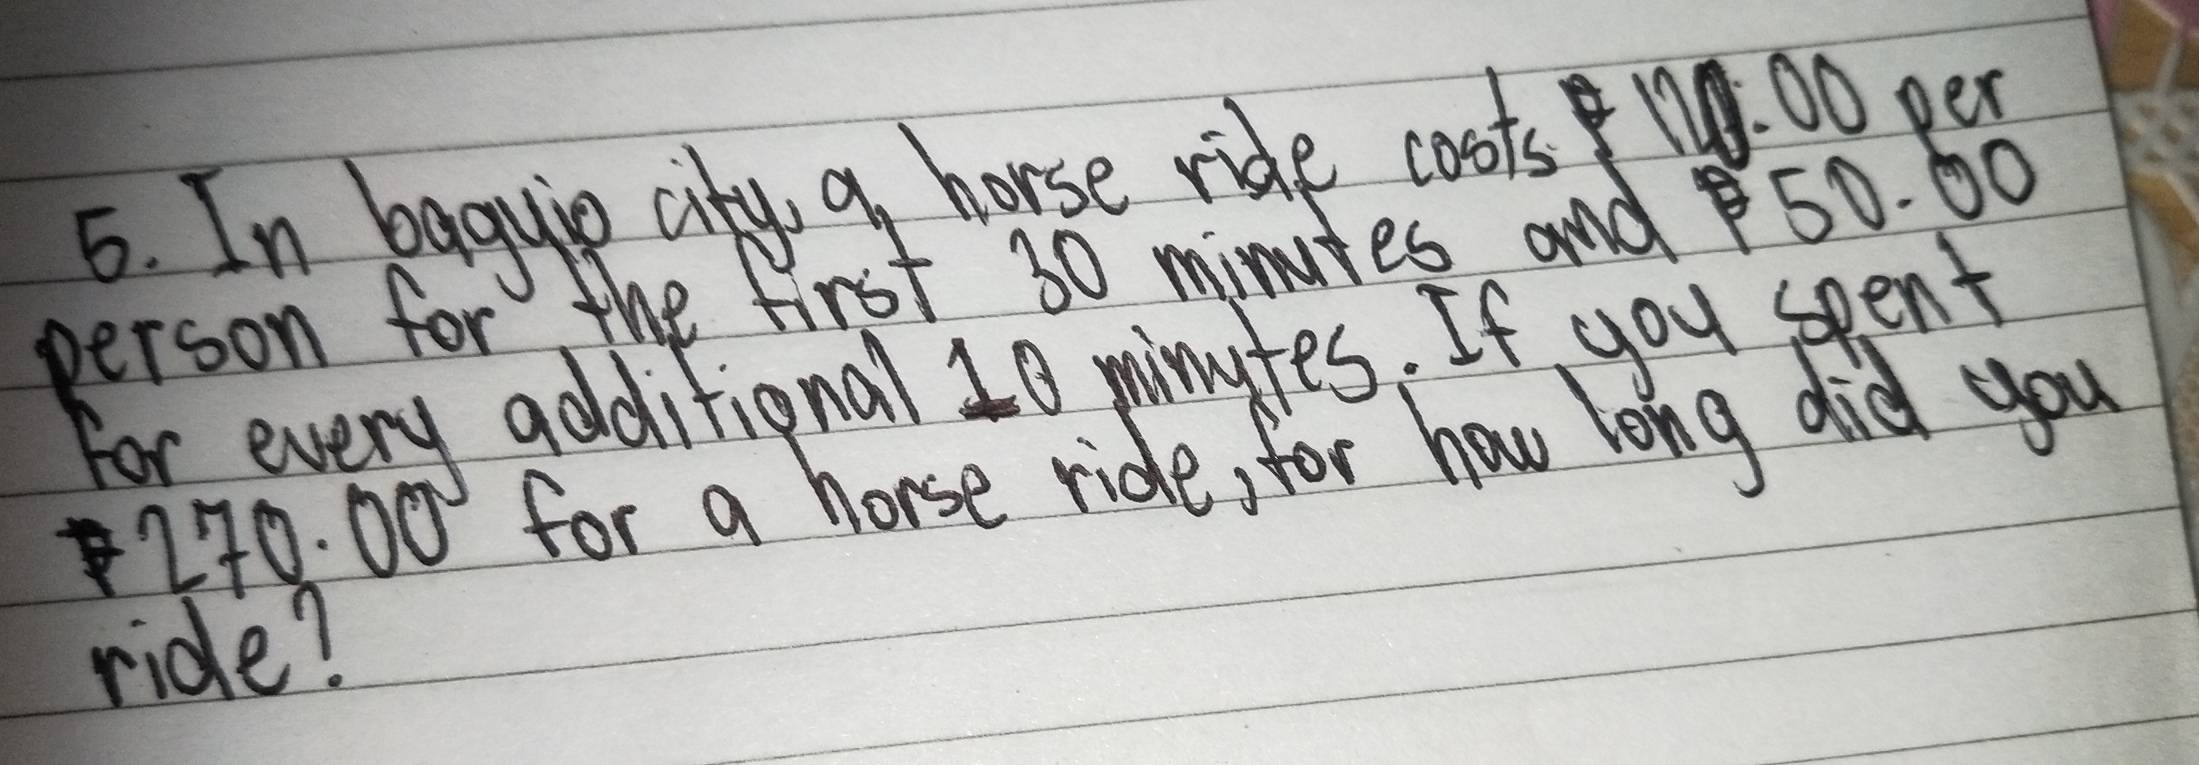 5. In baguio city, a horse ride costs ₱ 120.00 per
person for the first 30 minutes and ₱50.00
for every additional 10 minutes. If you spent
₱270.00 for a horse ride, for how long did you
ride?